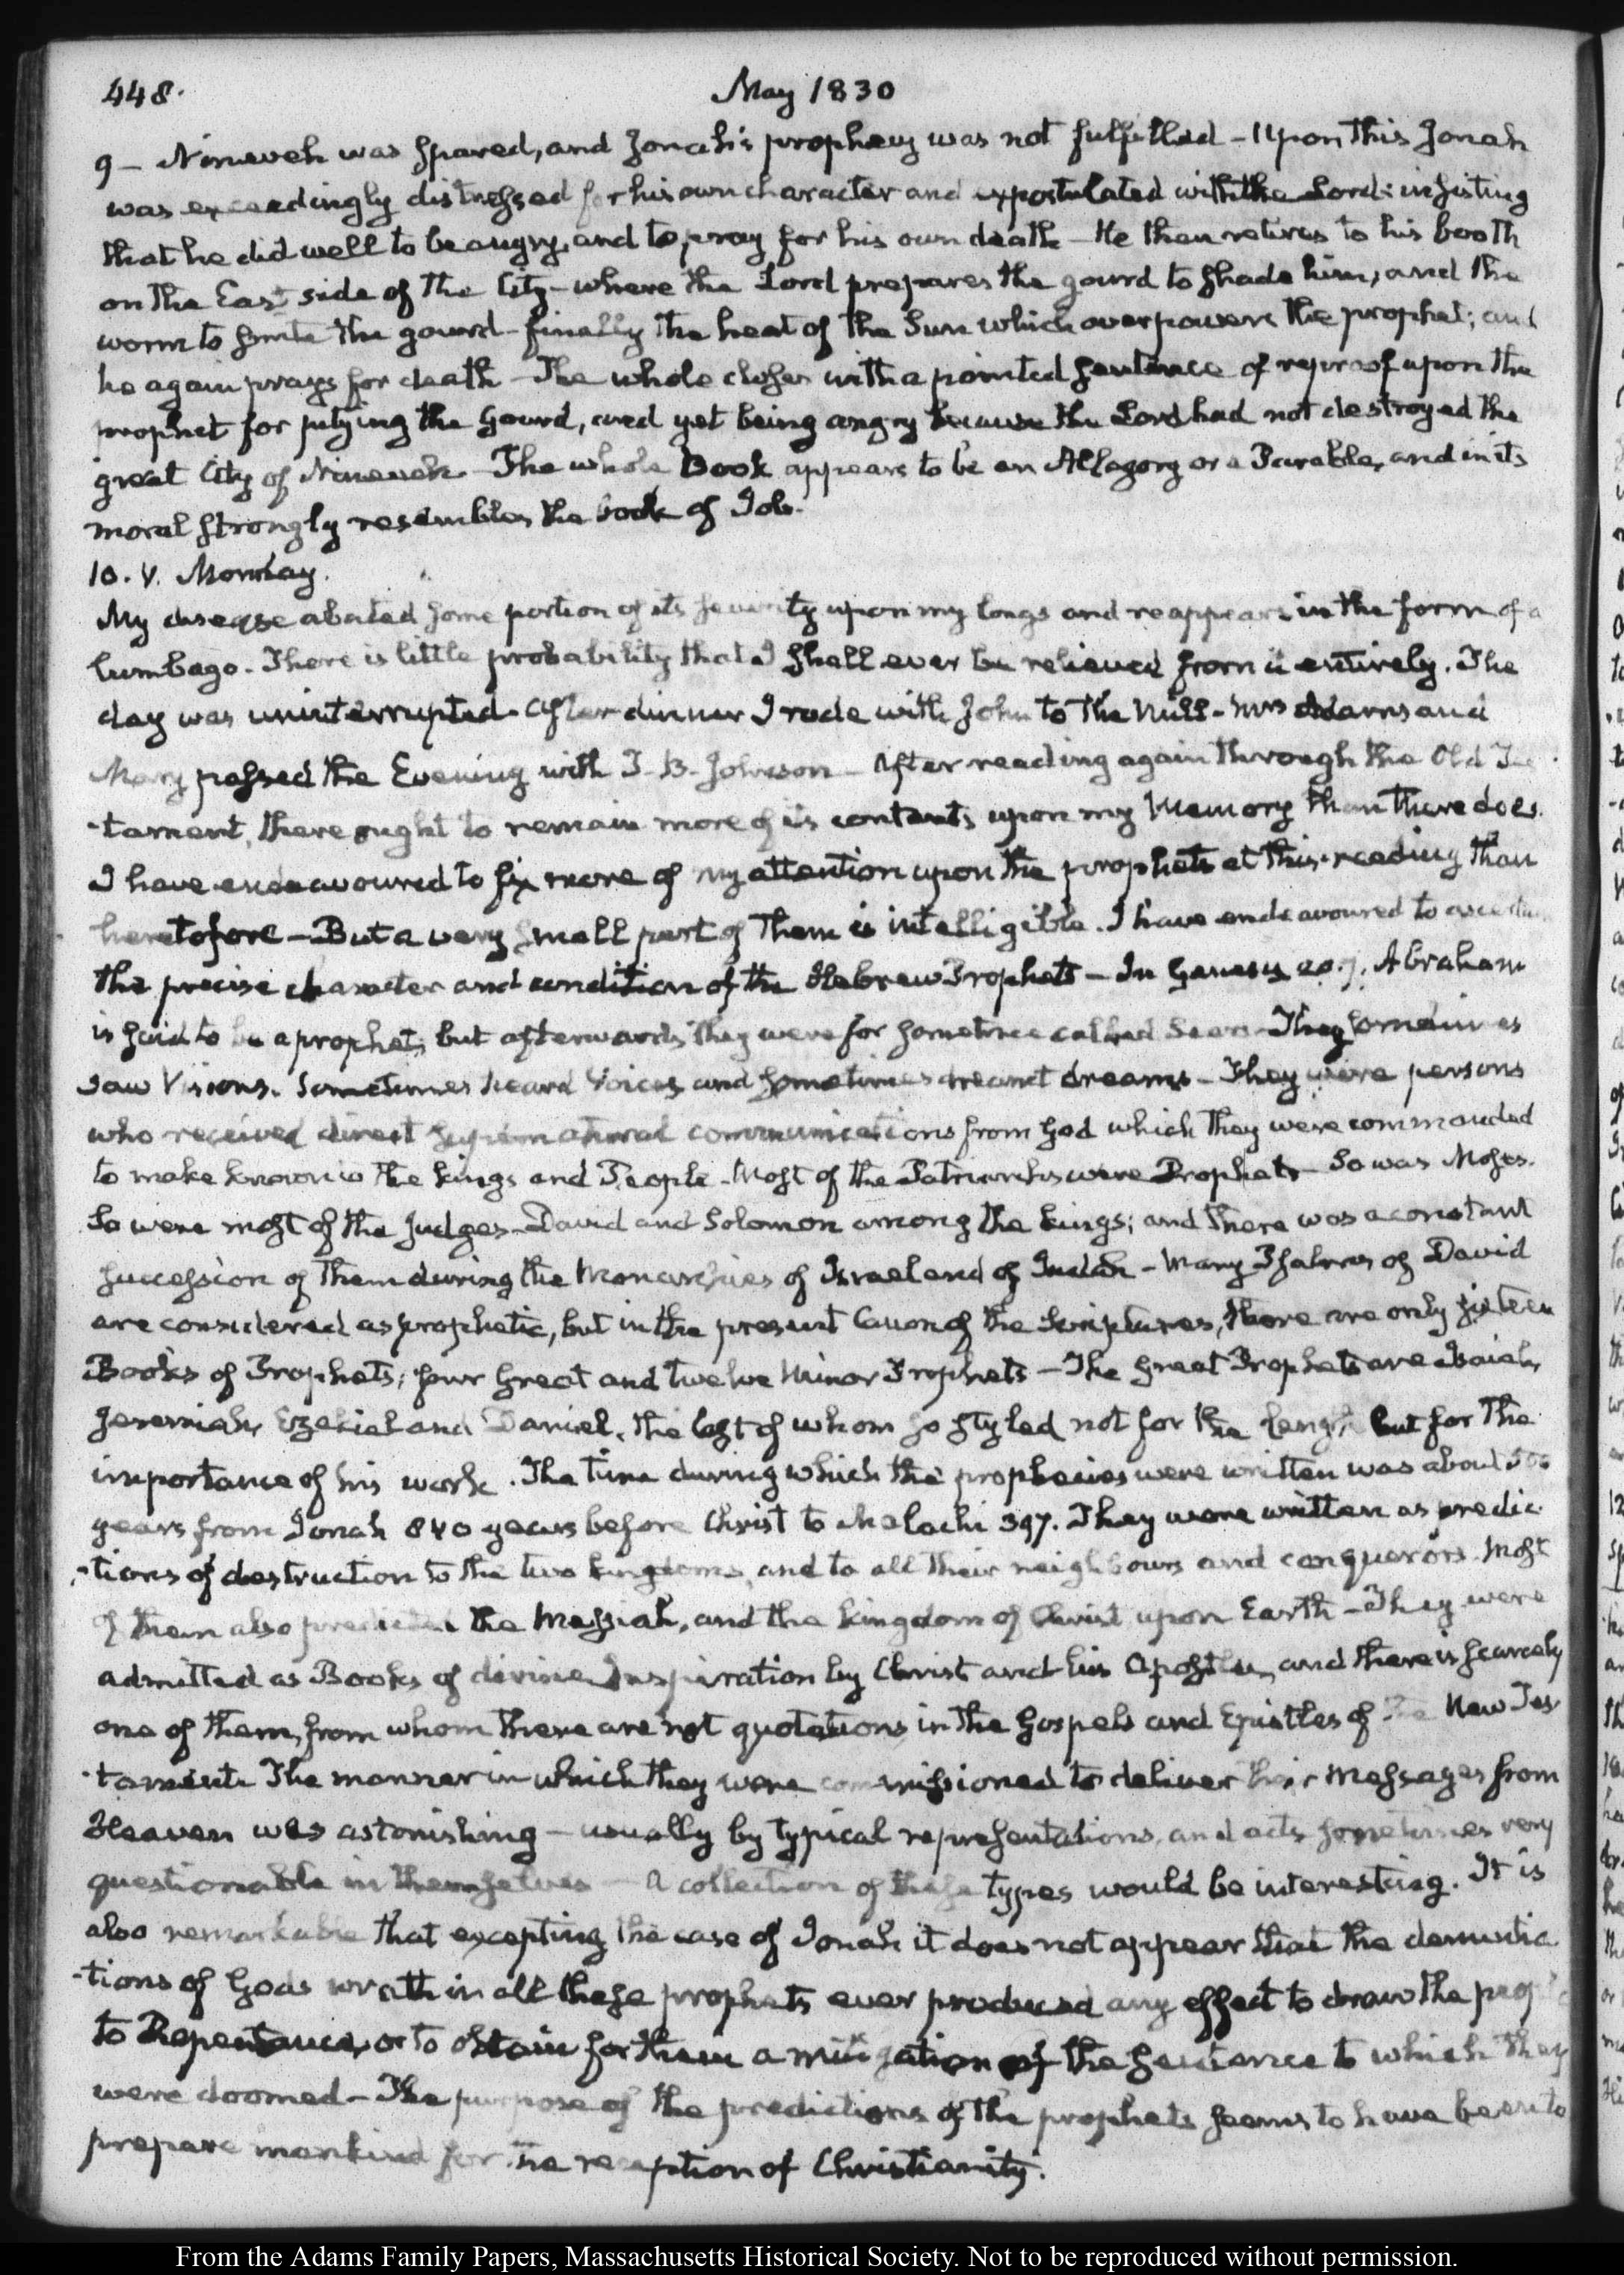 448.
May 1830
9 — Nineveh was spared, and Jonah's prophecy was not fulfilled — Upon this Jonah
was exceedingly distressed for his own character and expostulated with the Lord: insisting
that he did well to be angry, and to pray for his own death — He then retires to his booth
on the East side of the City — where the Lord prepares the gourd to shade him, and the
worm to smite the gourd — finally the heat of the Sun which overpowers the prophet; and
he again prays for death — The whole closes with a pointed sentence of reproof upon the
prophet for pitying the Gourd, and yet being angry because the Lord had not destroyed the
great City of Nineveh — The whole Book appears to be an Allegory or a Parable, and in its
moral strongly resembles the book of Job.
10. V. Monday.
My disease abated some portion of its severity upon my lungs and reappears in the form of a
lumbago. There is little probability that I shall ever be relieved from it entirely. The
day was uninterrupted. After dinner I rode with John to the Mill — Mrs Adams and
Mary passed the Evening with T. B. Johnson — After reading again through the Old Tes
-tament, there ought to remain more of its contents upon my Memory than there does.
I have endeavoured to fix more of my attention upon the prophets at this reading than
heretofore — But a very small part of them is intelligible. I have endeavoured to ascertain
the precise character and condition of the Hebrew Prophets — In Genesis 20.7. Abraham
is said to be a prophet; but afterwards they were for sometime called Seers — They sometimes
saw Visions. Sometimes heard Voices and sometimes dreamt dreams — They were persons
who received direct supernatural communications from God which they were commanded
to make known to the kings and People — Most of the Patriarchs were Prophets — So was Moses.
So were most of the Judges — David and Solomon among the kings; and there was a constant
succession of them during the Monarchies of Israel and of Judah — Many Psalms of David
are considered as prophetic, but in the present Canon of the Scriptures, there are only sixteen
Books of Prophets; four Great and twelve Minor Prophets — The Great Prophets are Isaiah,
Jeremiah, Ezekiel and Daniel, the last of whom so styled not for the length but for the
importance of his work. The time during which the prophecies were written was about
years from Jonah 840 years before Christ to Malachi 397. They were written as predic
-tions of destruction to the two kingdoms, and to all their neighbours and conquerors. Most
of them also predicted the Messiah, and the kingdom of Christ upon Earth — They were
admitted as Books of divine Inspiration by Christ and his Apostles, and there is scarcely
one of them, from whom there are not quotations in the Gospels and Epistles of the New Tes
-tament. The manner in which they were commissioned to deliver their Messages from
Heaven was astonishing — usually by typical representations, and acts sometimes very
questionable in themselves — A collection of these types would be interesting. It is
also remarkable that excepting the case of Jonah it does not appear that the denuntia
-tions of Gods wrath in all these prophets ever produced any effect to draw the people
to Repentance, or to obtain for them a mitigation of the sentence to which they
were doomed — The purpose of the predictions of the prophets seems to have been to
prepare mankind for the reception of Christianity.
From the Adams Family Papers, Massachusetts Historical Society. Not to be reproduced without permission.